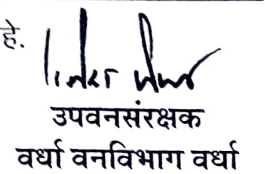 हे.
उपवनसंरक्षक
वर्धा वनविभाग वर्धा